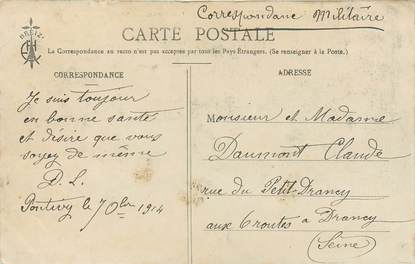 Correspondance Militaire
BREIZ
CARTE POSTALE
La Correspondance au recto n'est pas acceptée par tous les Pays Étrangers. (Se renseigner à la Poste.)
CORRESPONDANCE
Je suis toujour
en bonne sante
et désire que vous
soyez de même
D. L.
Pontivy le 7 Obre 1914
ADRESSE
Monsieur et Madame
Daumont Claude
rue du Petit-Drancy
aux 6 routes à Drancy
(Seine)